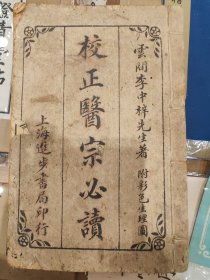 雲間李中梓先生著 附彩色生理圖
校正醫宗必讀
上海進步書局印行